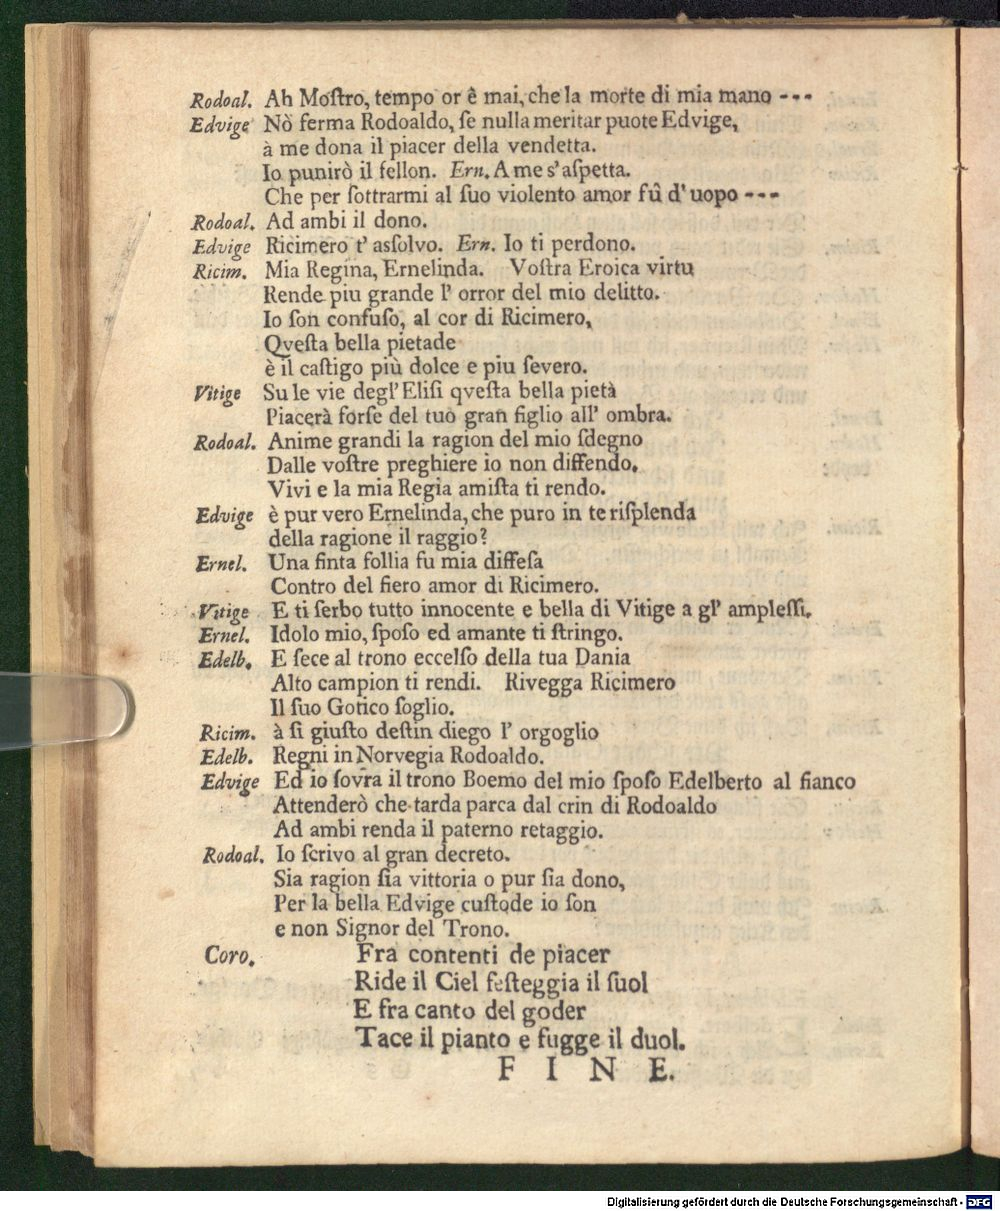 Rodoal. Ah Moſtro, tempo or è mai, che la morte di mia mano ---
Edvige Nò ferma Rodoaldo, ſe nulla meritar puote Edvige,
à me dona il piacer della vendetta.
Io punirò il fellon. Ern. A me s'aſpetta.
Che per ſottrarmi al ſuo violento amor fû d'uopo ---
Rodoal. Ad ambi il dono.
Edvige Ricimero t'aſſolvo. Ern. Io ti perdono.
Ricim. Mia Regina, Ernelinda. Voſtra Eroica virtu
Rende piu grande l'orror del mio delitto.
Io ſon confuſo, al cor di Ricimero,
Qveſta bella pietade
è il caſtigo più dolce e piu ſevero.
Vitige Su le vie degl'Eliſi qveſta bella pietà
Piacerà forſe del tuo gran figlio all'ombra.
Rodoal. Anime grandi la ragion del mio ſdegno
Dalle voſtre preghiere io non diffendo.
Vivi e la mia Regia amiſta ti rendo.
Edvige è pur vero Ernelinda, che puro in te riſplenda
della ragione il raggio?
Ernel. Una finta follia fu mia diffeſa
Contro del fiero amor di Ricimero.
Vitige E ti ſerbo tutto innocente e bella di Vitige a gl'ampleſſi.
Ernel. Idolo mio, ſpoſo ed amante ti ſtringo.
Edelb. E ſece al trono eccelſo della tua Dania
Alto campion ti rendi. Rivegga Ricimero
Il ſuo Gotico ſoglio.
Ricim. à ſi giuſto deſtin diego l'orgoglio
Edelb. Regni in Norvegia Rodoaldo.
Edvige Ed io ſovra il trono Boemo del mio ſpoſo Edelberto al fianco
Attenderò che tarda parca dal crin di Rodoaldo
Ad ambi renda il paterno retaggio.
Rodoal. Io ſcrivo al gran decreto.
Sia ragion ſia vittoria o pur ſia dono,
Per la bella Edvige cuſtode io ſon
e non Signor del Trono.
Coro. Fra contenti de piacer
Ride il Ciel feſteggia il ſuol
E fra canto del goder
Tace il pianto e fugge il duol.
FINE.
Digitalisierung gefördert durch die Deutsche Forschungsgemeinschaft - DFG